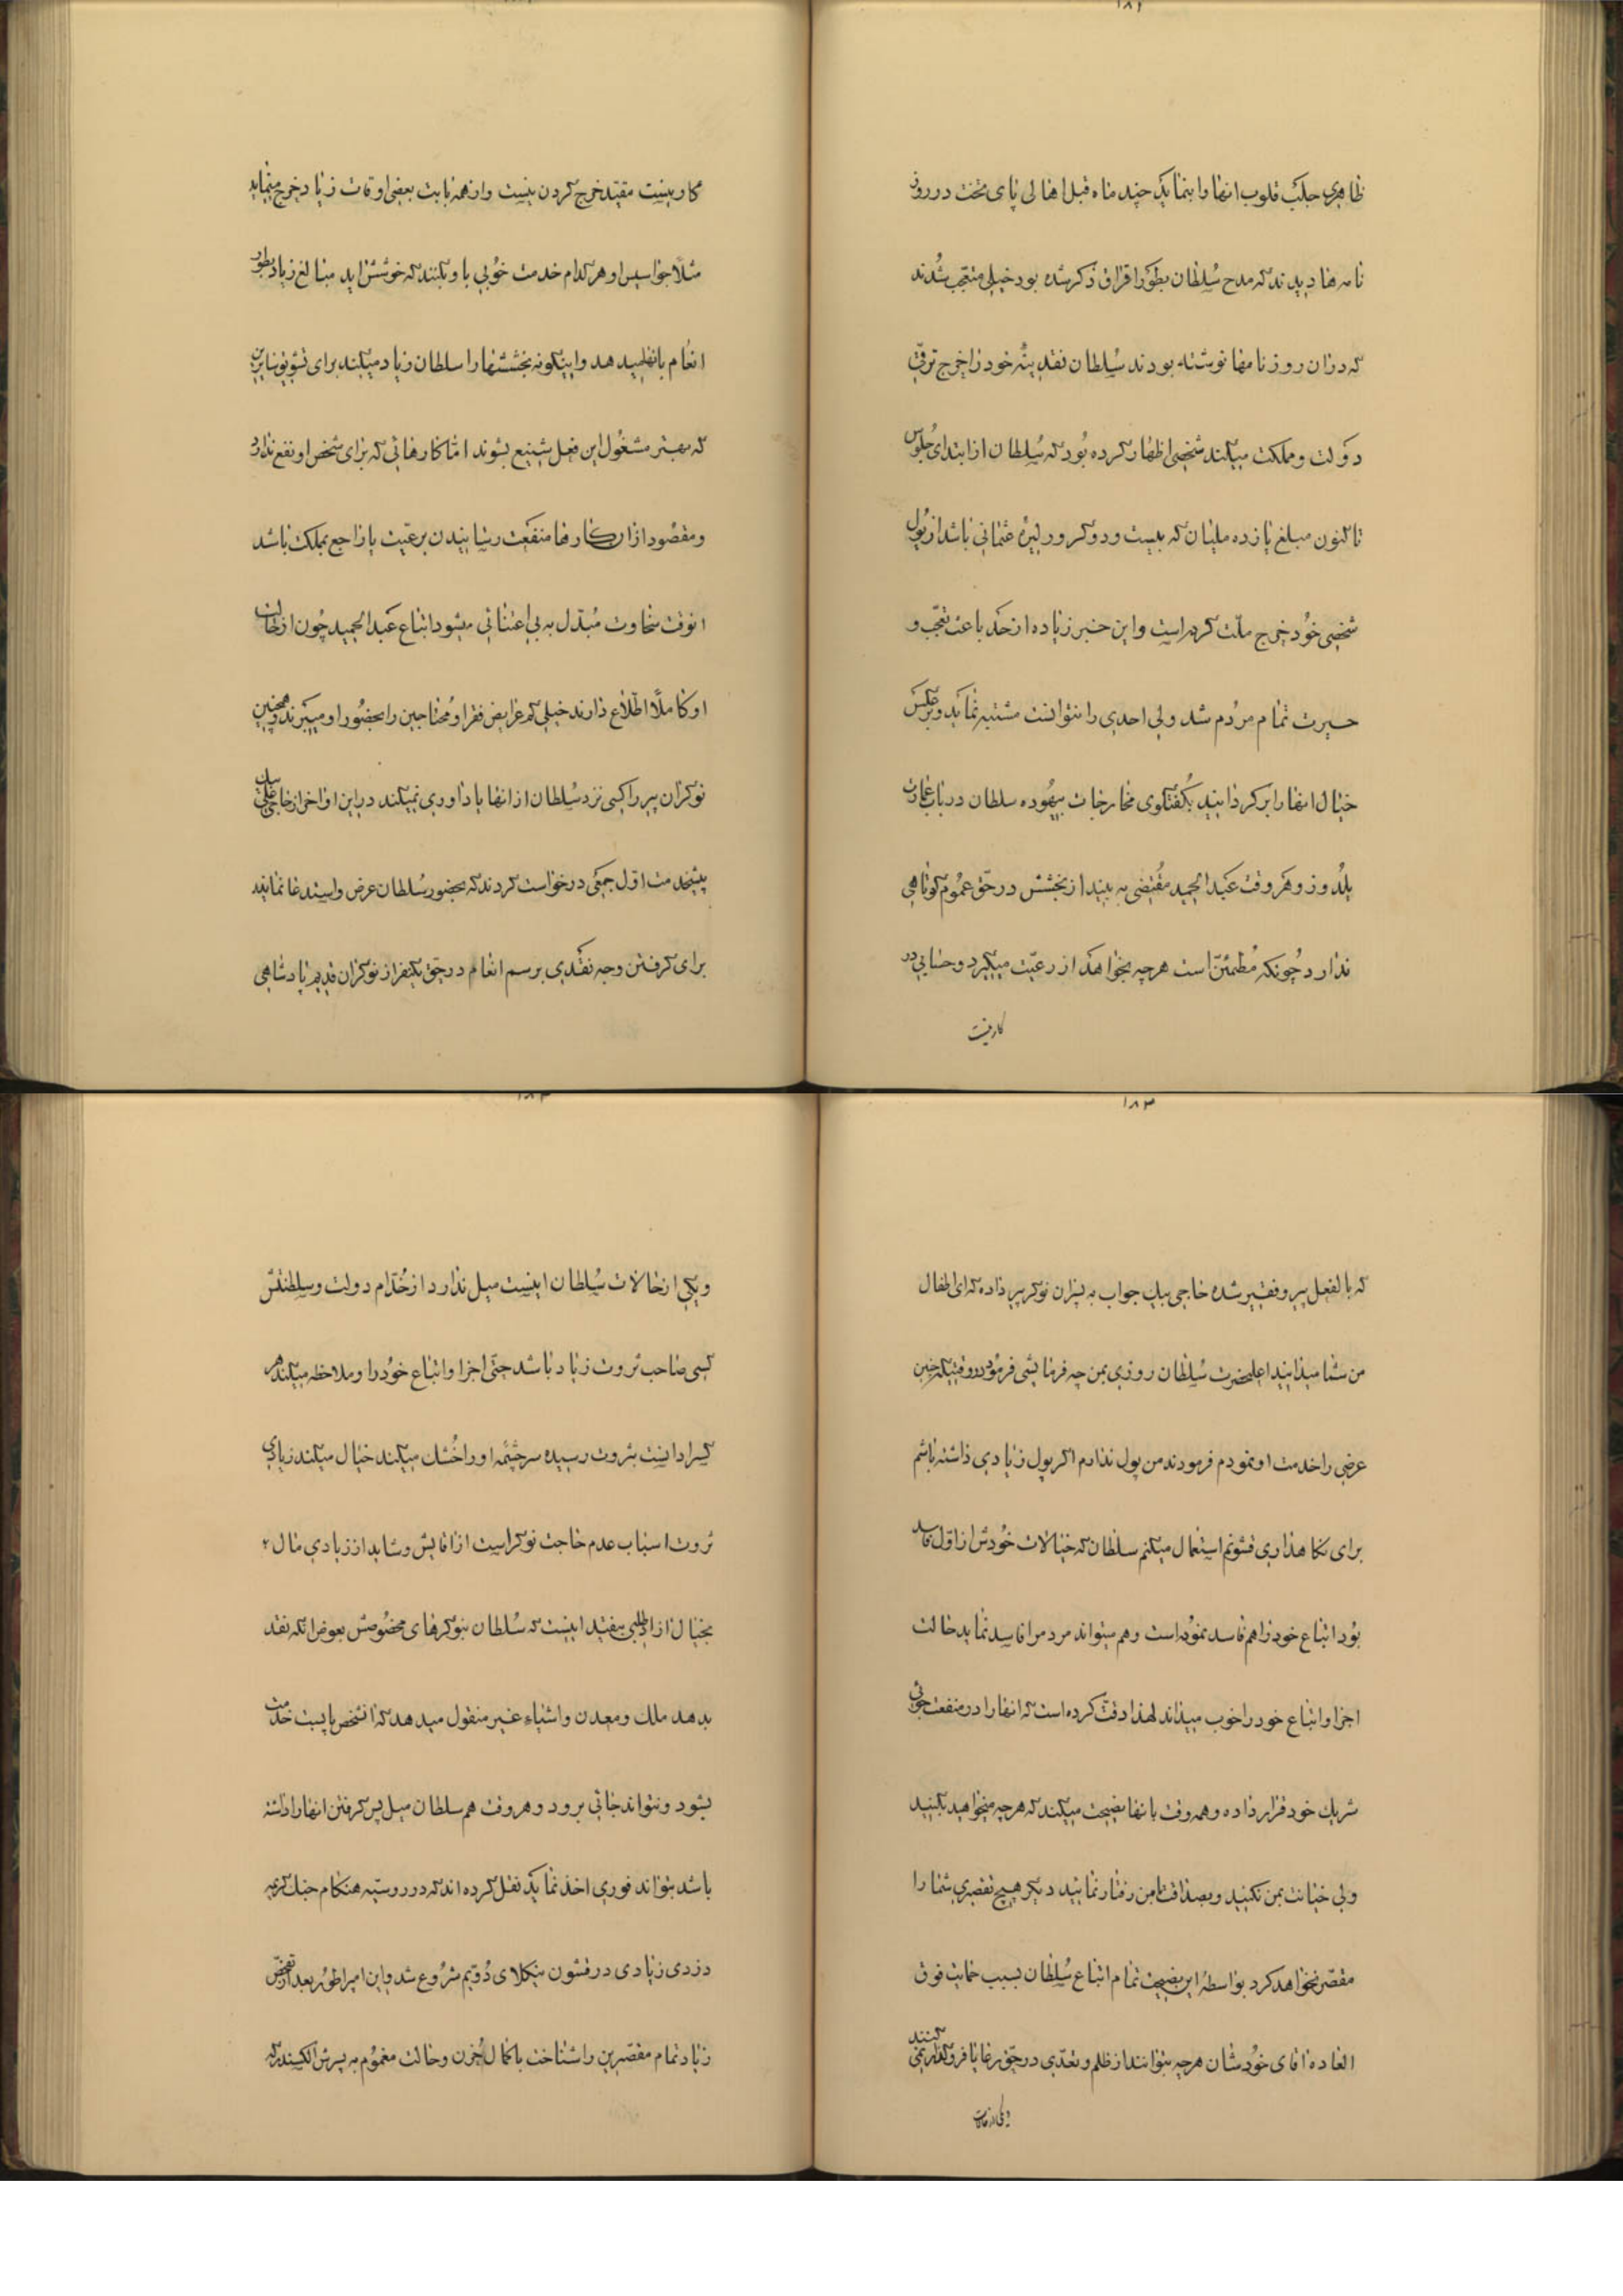 ۱۸۱
ظاهری جلب قلوب انها را بنماید چند ماه قبل اهالی پای تخت در روز
نامه ها دیدند که مدح سُلطان بطور اقراق ذکر شده بود خیلی متعجب شدند
که در ان روزنامها نوشته بودند سُلطان نقدینهٔ خود را خرج ترقی
دولت و مملکت میکند شخصی اظهار کرده بود که سُلطان از ابتدای جُلوس
تا کنون مبلغ یازده ملیان که بیست و دو کرور لیرهٔ عثمانی باشد از پُول
شخصی خُود خرج ملّت کرده است و این خبر زیاده از حد باعث تعجّب و
حیرت تمام مردُم شد ولی احدی را نتوانست مشتبه نماید و برعکس
خیال انها را برگردانید بگفتگوی مخارجات بیهُوده سلطان در باب عمارت
یلدوز و هر وقت عبد الحمید مقتضی به بیند از بخشش در حقّ عمُوم کوتاهی
ندارد چُونکه مُطمئنّ است هرچه بخواهد از رعیّت میگیرد و حسابی در
کار نیست
کار نیست مقیّد خرج کردن نیست و از همه بابت بعضی اوقات زیاد خرج مینماید
مثلاً جواسیس او هر کدام خدمت خُوبی باو بکنند که خوشش اید مبالغ زیاد بطور
انعام بانها میدهد و اینگونه بخششها را سلطان زیاد میکند برای تشویق سایرین
که بهتر مشغُول این فعل شنیع بشوند امّا کارهائی که برای شخص او نفع ندارد
و مقصُود از ان کارها منفعت رسانیدن برعیّت یا راجع بمملکت باشد
انوقت سخاوت مُبدّل به بی اعتنائی میشود اتباع عبد الحمید چُون از حالت
او کاملاً اطّلاع دارند خیلی کم عرایض فقرا و مُحتاجین را بحضُور او میبرند و همچنین
نوکران پیر را کسی نزد سُلطان از انها یاداوری نمیکند در این اواخر از حاجی علی بیک
پیشخدمت اوّل جمعی درخواست کردند که بحضور سُلطان عرض و استدعا نماید
برای گرفتن وجه نقدی برسم انعام در حقّ یکنفر از نوکران قدیم پادشاهی
۱۸۳
که بالفعل پیر و فقیر شده حاجی بیک جواب به پسران نوکر پیر داده که ای اطفال
من شما میدانید اعلیحضرت سُلطان روزی بمن چه فرمایشی فرمُود در وقتیکه چنین
عرضی را خدمت او نمودم فرمودند من پول ندارم اگر پول زیادی داشته باشم
برای نگاهداری قشونم استعمال میکنم سلطان که خیالات خُودش از اوّل فاسد
بُود اتباع خود را هم فاسد نمُوده است و هم میتواند مردم را فاسد نماید حالت
اجزا و اتباع خود را خوب میداند لهذا دقّت کرده است که انها را در منفعت جوئی
شریک خود قرار داده و همه وقت بانها نصیحت میکند که هرچه میخواهید بکنید
ولی خیانت بمن نکنید و بصداقت با من رفتار نمائید دیگر هیچ تقصیری شما را
مقصّر نخواهد کرد بواسطهٔ این نصیحت تمام اتباع سُلطان بسبب حمایت فوق
العاده اقای خُودشان هرچه بتوانند از ظلم و تعدّی در حقّ رعایا فروگذار نمی کنند
و یکی از حالات
و یکی از حالات سُلطان اینست میل ندارد از خُدّام دولت و سلطنتش
کسی صاحب ثروت زیاد باشد حتّی اجزا و اتباع خُود را و ملاحظه میکند هر
کسرا دانست بثروت رسیده سرچشمهٔ او را خُشک میکند خیال میکند زیادی
ثروت اسباب عدم حاجت نوکر است از اقایش و شاید از زیادی مال
بخیال ازاد طلبی بیفتد اینست که سُلطان بنوکرهای مخصُوصش بعوض انکه نقد
بدهد ملک و معدن و اشیاء غیر منقول میدهد که انشخص پابست خدمت
بشود و نتواند جائی برود و هر وقت هم سلطان میل پس گرفتن انها را داشته
باشد بتواند فوری اخذ نماید نقل کرده اند که در روسیّه هنگام جنگ کریمه
دزدی زیادی در قشون نیکلای دُویّم شرُوع شد و این امپراطور بعد از تفحّص
زیاد تمام مقصّرین را شناخت با کمال حُزن و حالت مغمُوم به پسرش الکسندر که